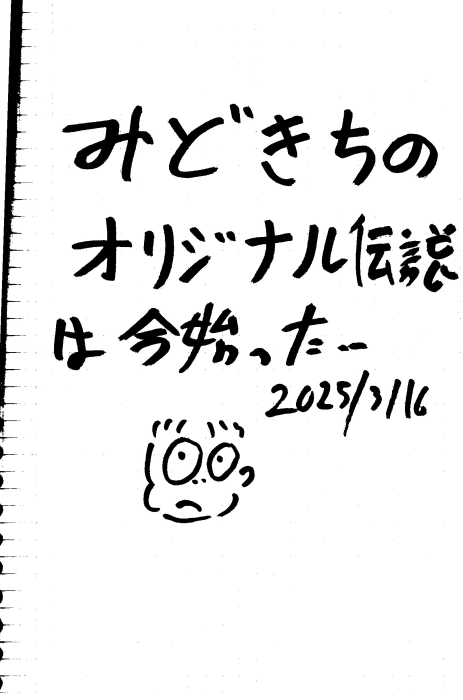 みどきちの
オリジナル伝説
は今始った--
2025/3/16